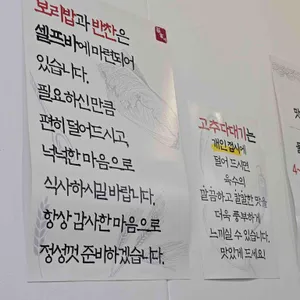 보리밥과 반찬은
셀프바에 마련되어
있습니다.
필요하신 만큼
편히 덜어드시고,
넉넉한 마음으로
식사하시길 바랍니다.
항상 감사한 마음으로
정성껏 준비하겠습니다.
고추다대기는
개인 접시에
덜어 드시면
육수의
깔끔하고 칼칼한 맛을
더욱 풍부하게
느끼실 수 있습니다.
맛있게 드세요!